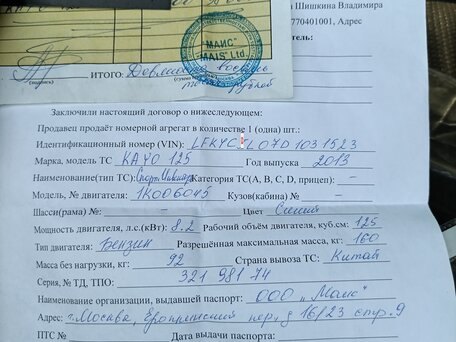 Шишкина Владимира
770401001, Адрес
"МАИС"
"MAIS" Ltd.
ИТОГО: Девяносто восемь
(подпись)
тысяч рублей
Заключили настоящий договор о нижеследующем:
Продавец продаёт номерной агрегат в количестве 1 (одна) шт.:
Идентификационный номер (VIN): LFKYC L07D1031523
Марка, модель ТС КАYО 125 Год выпуска 2013
Наименование(тип ТС) Категория ТС(А, В, С, D, прицеп) –
Модель, № двигателя: 1К006045 Кузов(кабина) № –
Шасси(рама) № – Цвет Синий
Мощность двигателя, л.с.(кВт): 8.2 Рабочий объём двигателя, куб.см: 125
Тип двигателя: Бензин Разрешённая максимальная масса, кг: 160
Масса без нагрузки, кг: 92 Страна вывоза ТС: Китай
Серия, № ТД, ТПО: 321 981 74
Наименование организации, выдавшей паспорт: ООО „Маис"
Адрес: г.Москва, пер, д 16/23 стр. 9
ПТС № Дата выдачи паспорта: